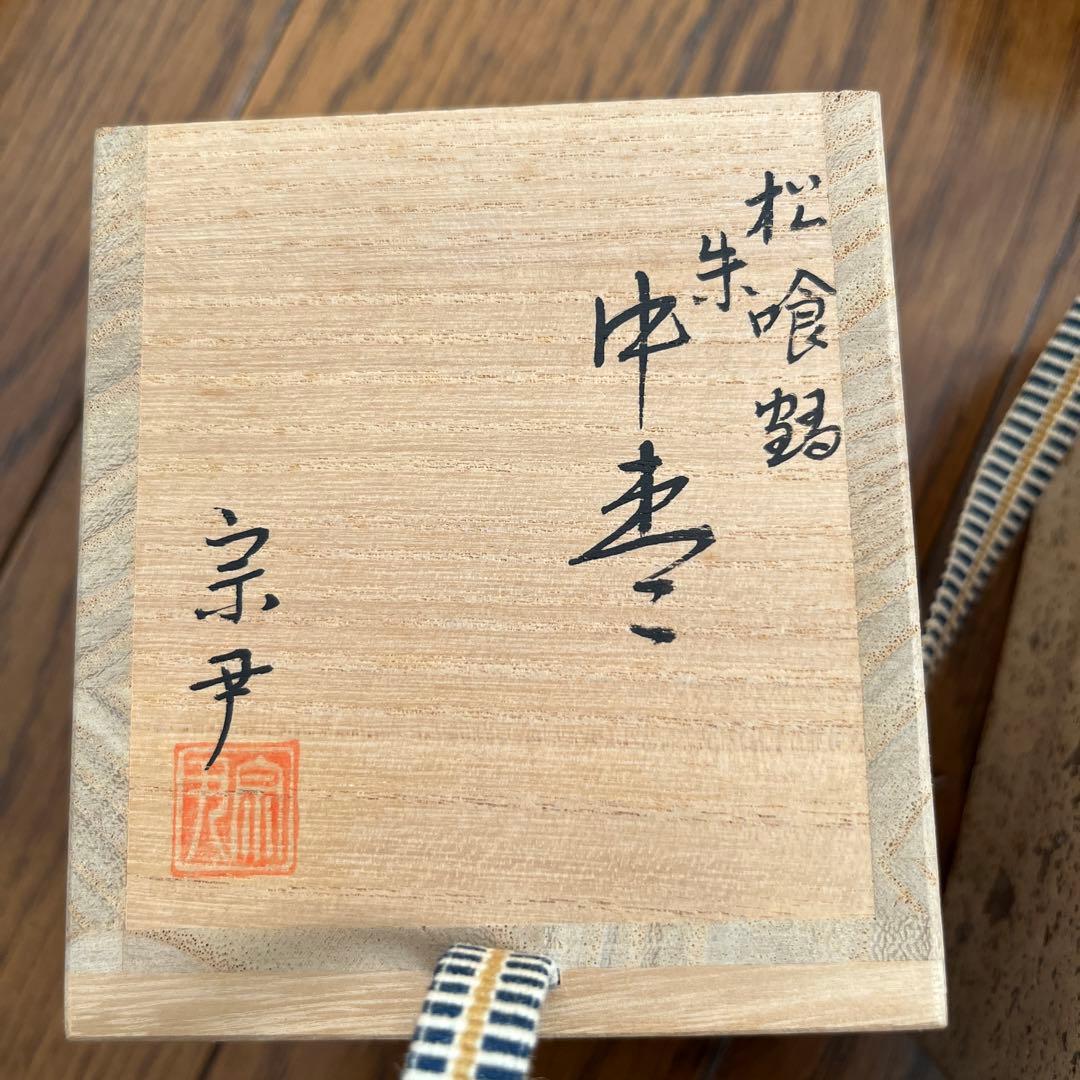 松喰鶴
朱
中棗
宗尹
宗尹